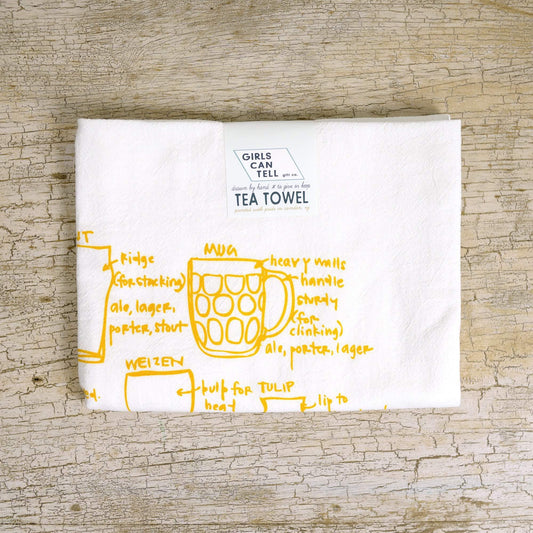 GIRLS
CAN
TELL
gift co.
drawn by hand & to give or keep
TEA TOWEL
printed with pride in camden, nj
NT
Ridge
(for stacking)
ale, lager,
porter, stout
MUG
heavy walls
handle
sturdy
(for
clinking)
ale, porter, lager
ed.
WEIZEN
bulb for
head
TULIP
lip to